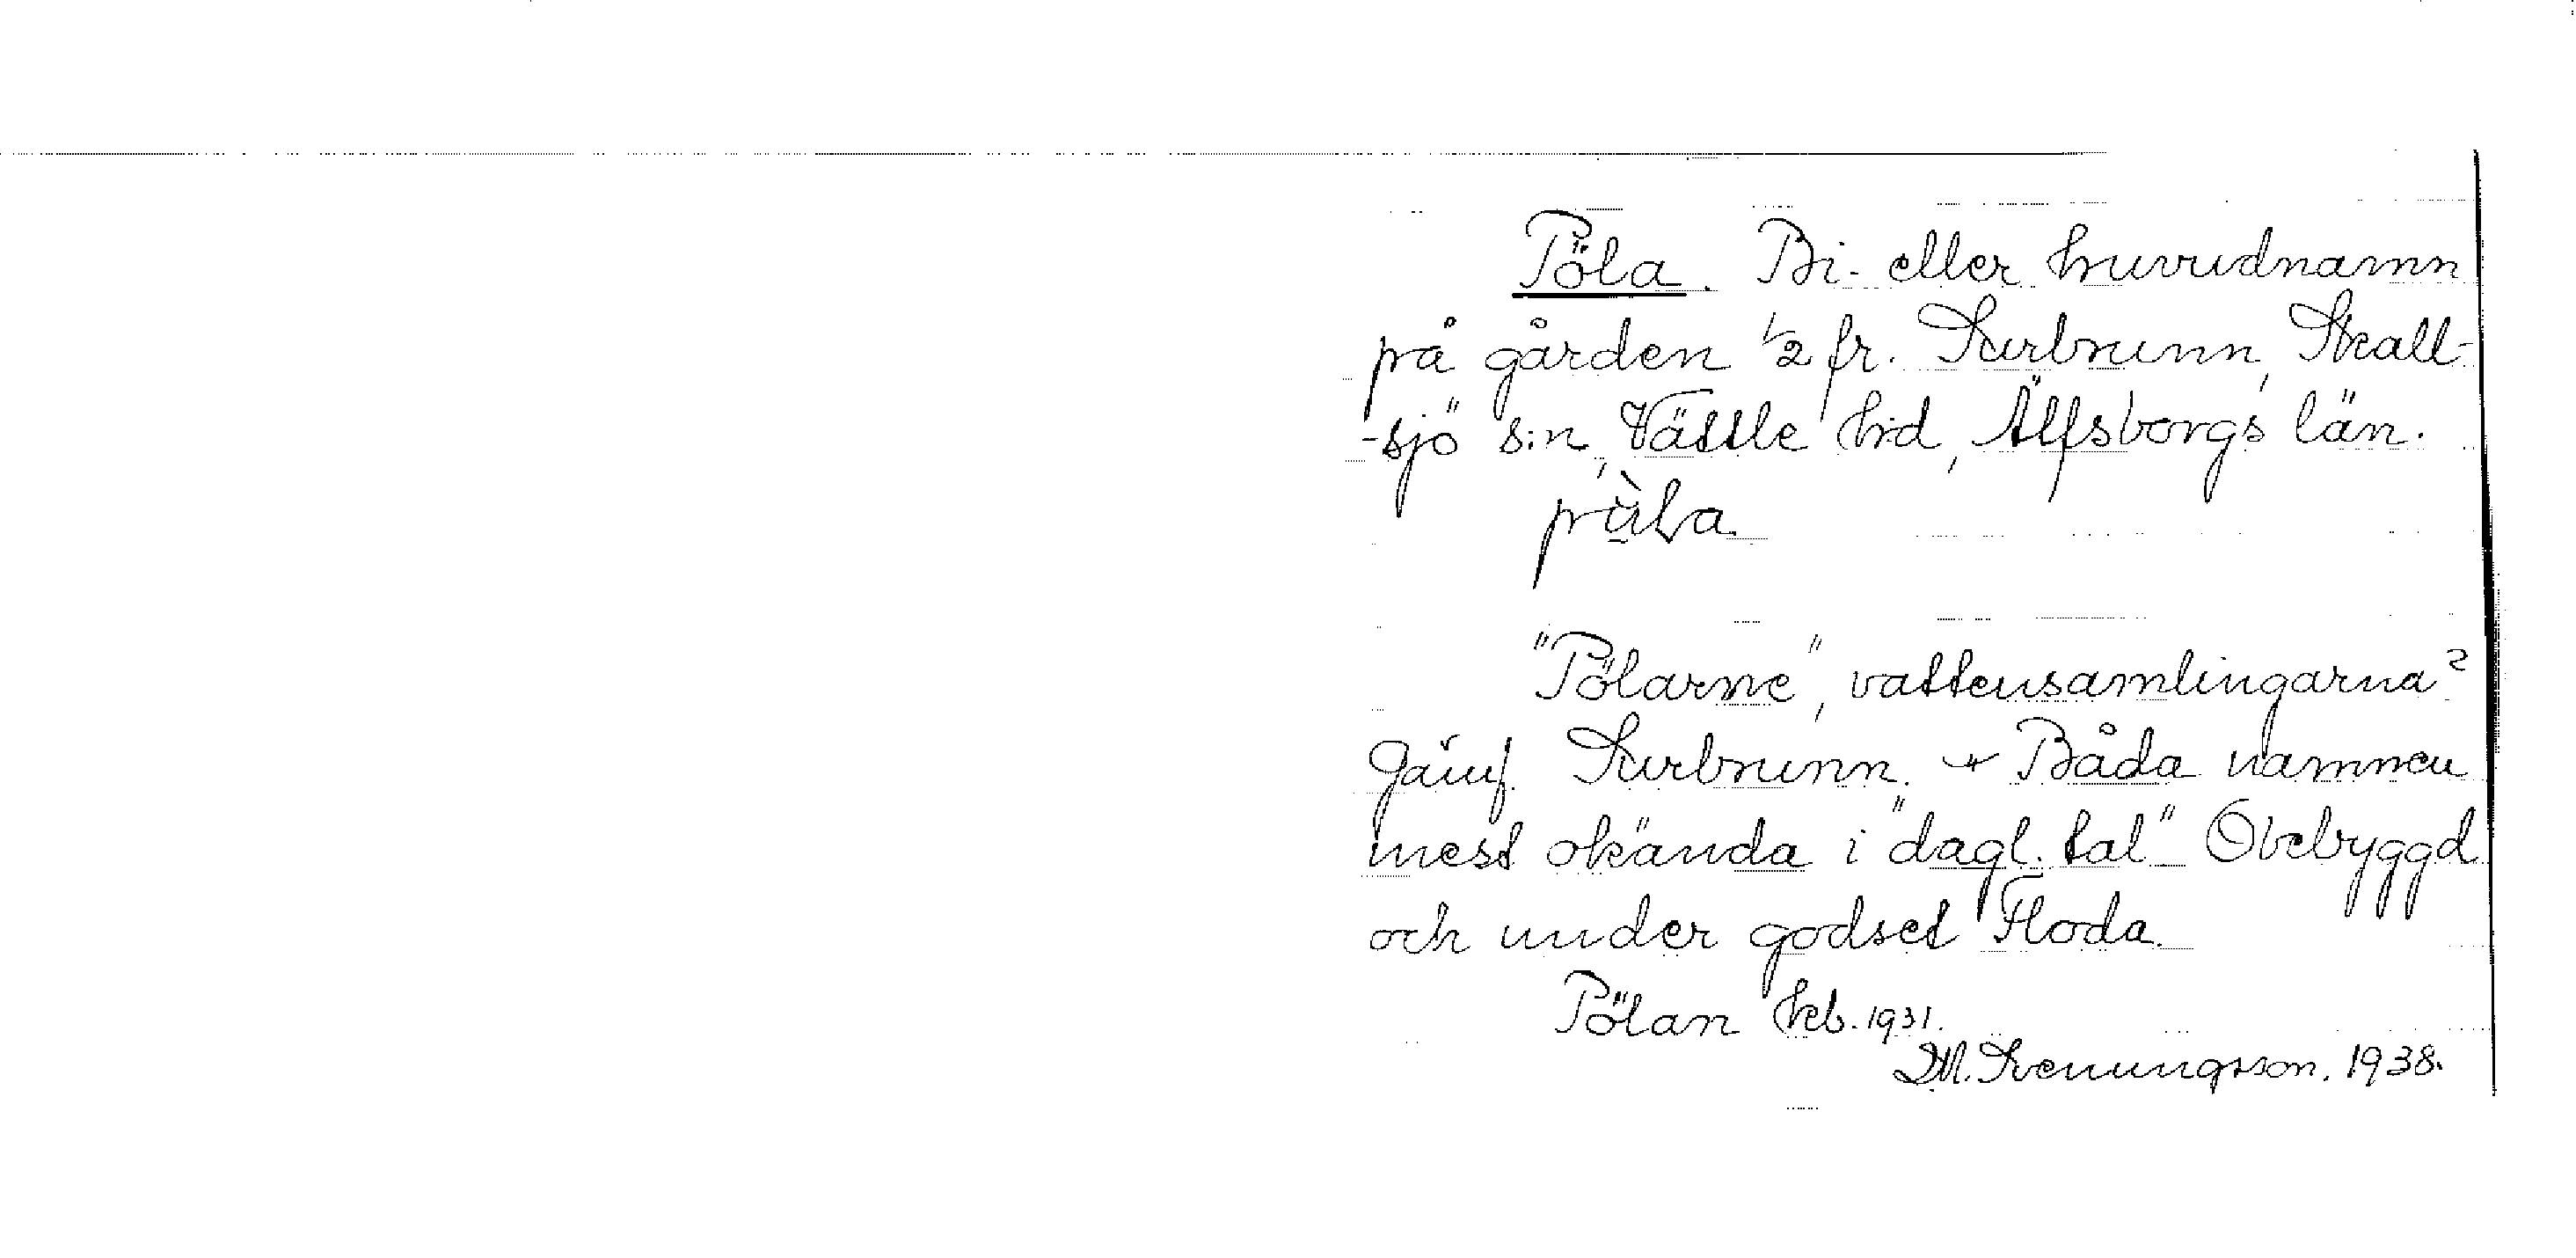 Pöla. Bi- eller huvudnamn
på gården 1/2 fr. Surbrunn, Skall-
-sjö s:n, Vättle hd, Älfsborgs län.

"Pölarne", vattensamlingarna?
Jämf. Surbrunn. Båda namnen
mest okända i "dagl. tal" Obebyggd
och under godset Floda.
Pölan kb. 1931.
M. Svenungsson. 1938.